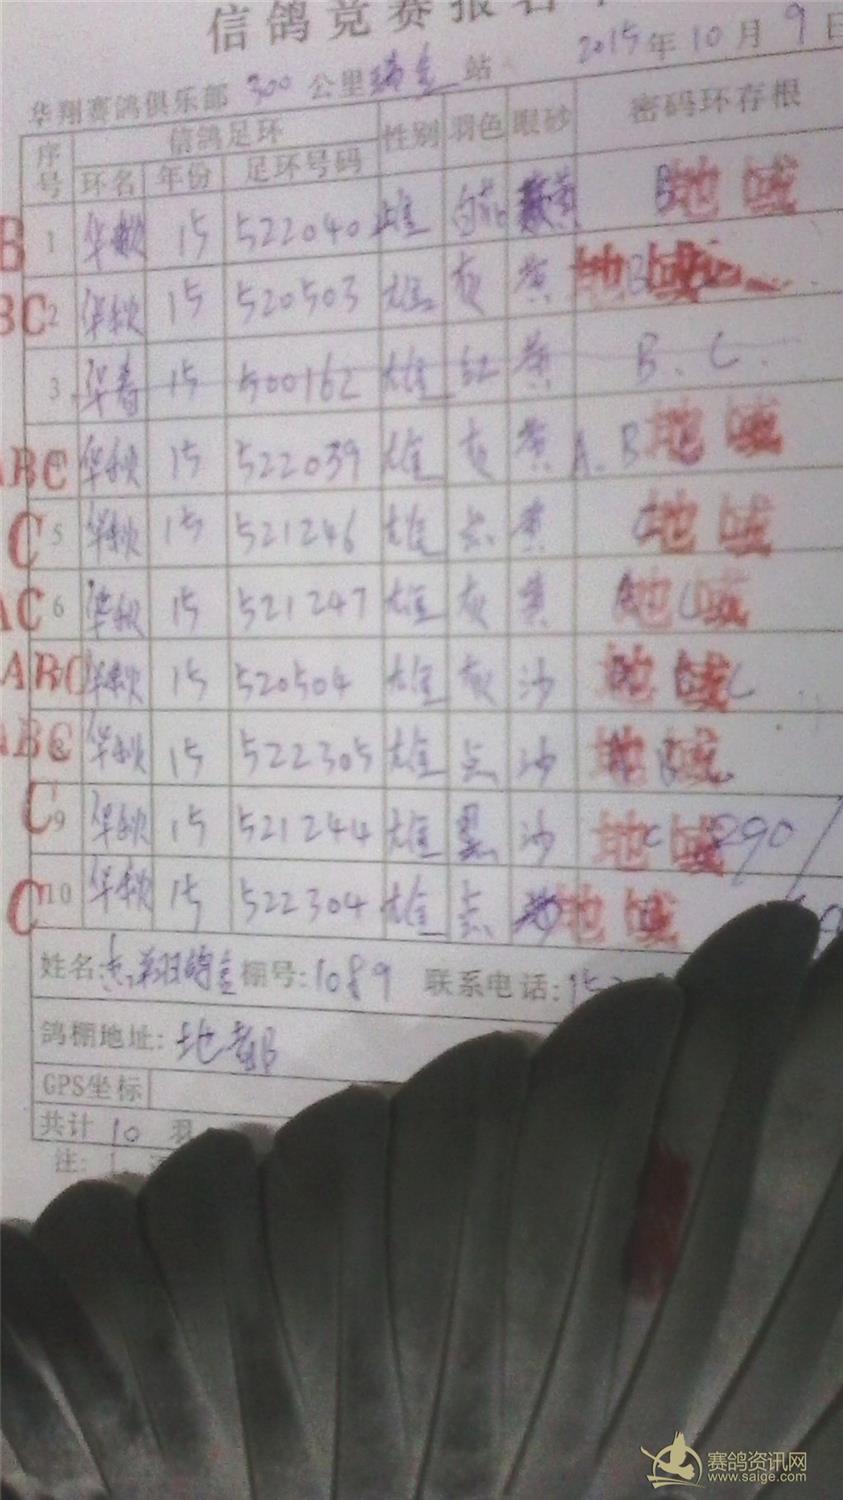 信鸽竞赛报名
华翔赛鸽俱乐部 300 公里瑞金站 2015年10月9日
序号 信鸽足环 性别 羽色 眼砂 密码环存根
环名 年份 足环号码
B 1 华秋 15 522040 雄 白花 黄 B 地域
BC 2 华秋 15 520503 雄 灰 黄 地域
3 华春 15 500162 雄 红 黄 B.C.
ABC 华秋 15 522039 雄 灰 黄 A.B 地域
C 5 华秋 15 521246 雄 点 黄 C 地域
AC 6 华秋 15 521247 雄 灰 黄 地域
ABC 华秋 15 520504 雄 灰 沙 地域 C
ABC 华秋 15 522305 雄 点 沙 地域
C 9 华秋 15 521244 雄 黑 沙 地域 890
C 10 华秋 15 522304 雄 点 沙 地域
姓名: 翔鸽 棚号: 1089 联系电话: 15
鸽棚地址: 地都
GPS坐标
共计 10 羽
注: 1.
赛鸽资讯网
www.saige.com